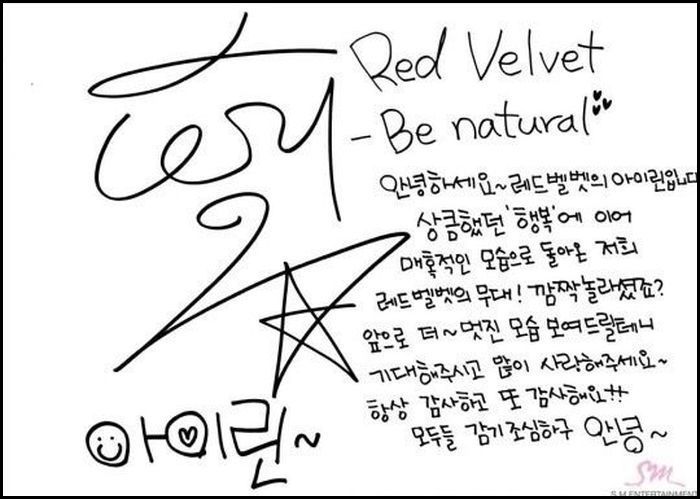 Red Velvet
- Be natural
안녕하세요~ 레드벨벳의 아이린입니다
상큼했던 '행복'에 이어
매혹적인 모습으로 돌아온 저희
레드벨벳의 무대! 깜짝놀라셨죠?
앞으로 더~ 멋진 모습 보여드릴테니
기대해주시고 많이 사랑해주세요~
항상 감사하고 또 감사해요!!
모두들 감기조심하구 안녕~
아이린~
SM
S.M.ENTERTAINMENT